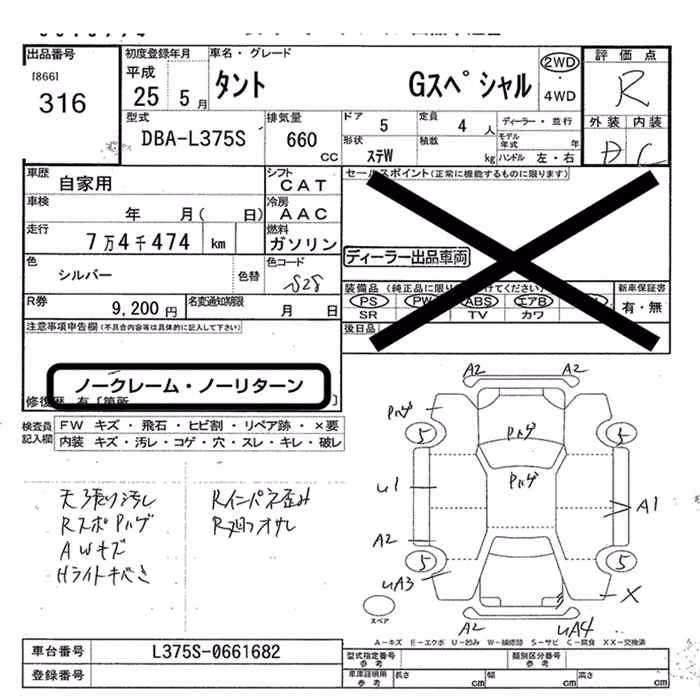 出品番号
[866]
316
初度登録年月
平成
25 5 月
車名・グレード
タント Gスペシャル
2WD
・
4WD
評価点
R
外装 内装
D C
型式
DBA-L375S
排気量
660
CC
ドア
5
定員
4 人
ディーラー・並行
形状
ステW
積載
kg
モデル年式 年
ハンドル 左・右
車歴
自家用
シフト
CAT
車検
年 月( 日)
冷房
AAC
走行
7万4千474 km
燃料
ガソリン
色
シルバー
色替
色コード
S28
R券
9,200 円
名変通知期限
月 日
セールスポイント(正常に機能するものに限ります)
ディーラー出品車両
装備品(純正品に限り けてください)
PS PW ABS エアB
SR TV カワ
新車保証書
有・無
後日品
注意事項申告欄(不具合内容等は具体的に記入して下さい)
ノークレーム・ノーリターン
修復歴 有 [箇所 ]
検査員記入欄
FW キズ・飛石・ヒビ割・リペア跡・×要
内装 キズ・汚レ・コゲ・穴・スレ・キレ・破レ
天張り汚レ
RスポPハゲ
AWキズ
Hライトキバミ
Rインパネ歪み
A2 A2
Pハゲ
5 5
Pハゲ
Pハゲ
U1
A1
A2
5 5
UA3
X
A2 UA4
スペア
A-キズ E-エクボ U-凹み W-補修跡 S-サビ C-腐食 XX-交換済
車台番号
L375S-0661682
登録番号
型式指定番号
参考
類別区分番号
参考
車庫証明用
参考
長さ cm
幅 cm
高さ cm